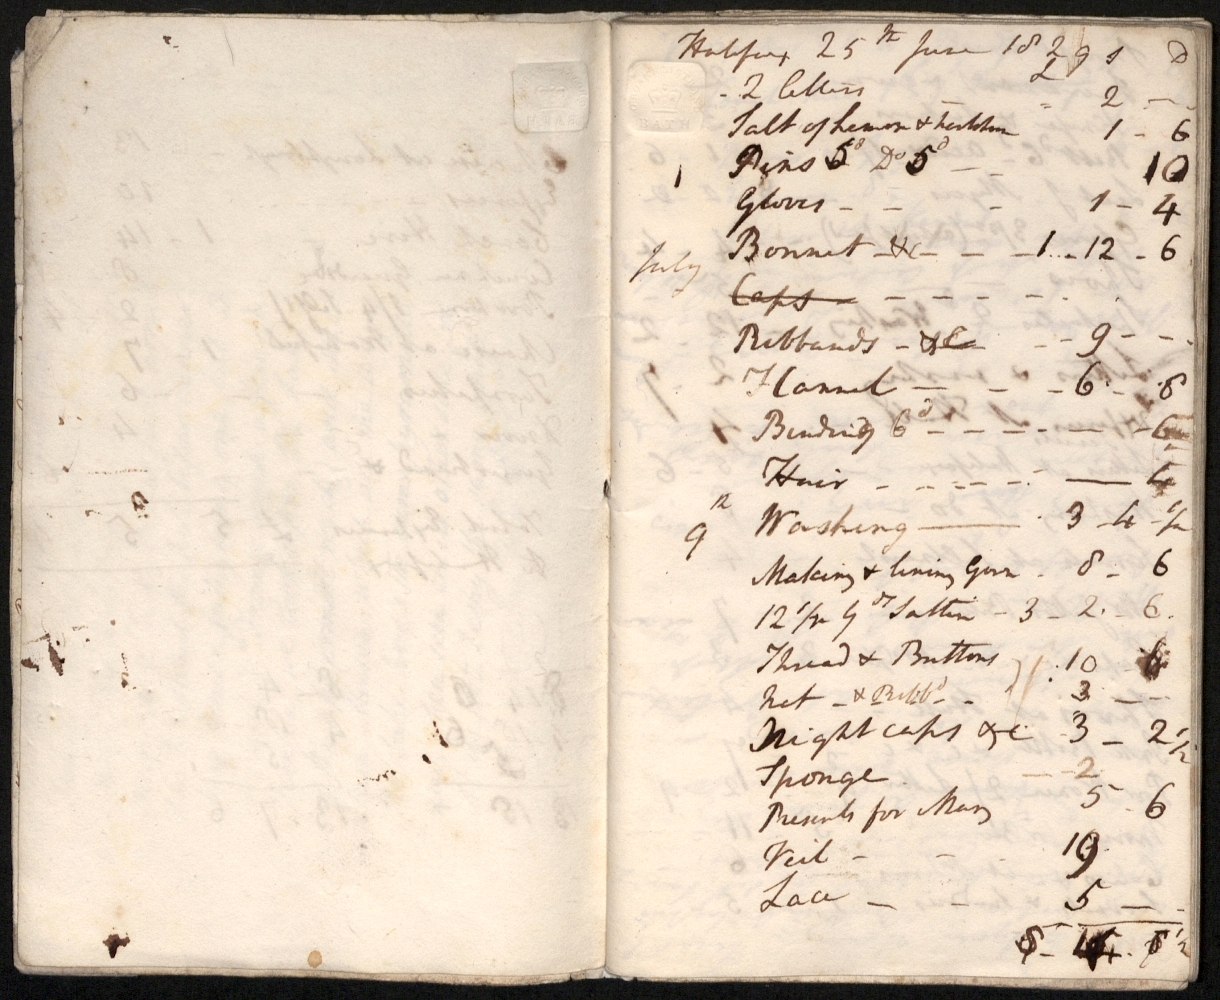 Halifax 25th June 1829
£ s D
- 2 letters - " 2 - -
Salt of Lemon & 1 - 6
1 Pins 5d Do 5d - - 10
Gloves - - - 1 - 4
July Bonnet &c - - - 1 - 12 - 6
Caps - - - - -
Ribbands - &c - - 9 - -
Flannel - - - 6 - 8
Binding 6d - - - - - 6
Hair - - - - - 4
9th Washing - 3 - 4 - 1/2
Making & lining Gown - 8 - 6
12 1/2 yds Sattin - 3 - 2 - 6
Thread & Buttons 10 - 6
net - & Ribbd - - 3 - -
Night caps &c 3 - 2 1/2
Sponge - - 2 -
Presents for Mary 5 - 6
Veil - - - 19
Lace - 5 - -
8 - 14 - 8 1/2